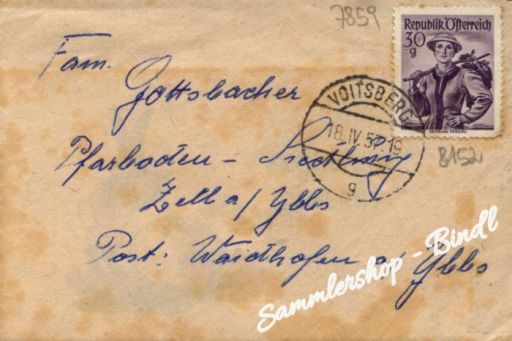 7859
Republik Österreich
30
g
Fam.
Gottsbacher
VOITSBERG
18.IV.52-19
g
8152
Pfarboden - Siedlung
Zell a/Ybbs
Post: Waidhofen a. Ybbs
Sammlershop - Bindl